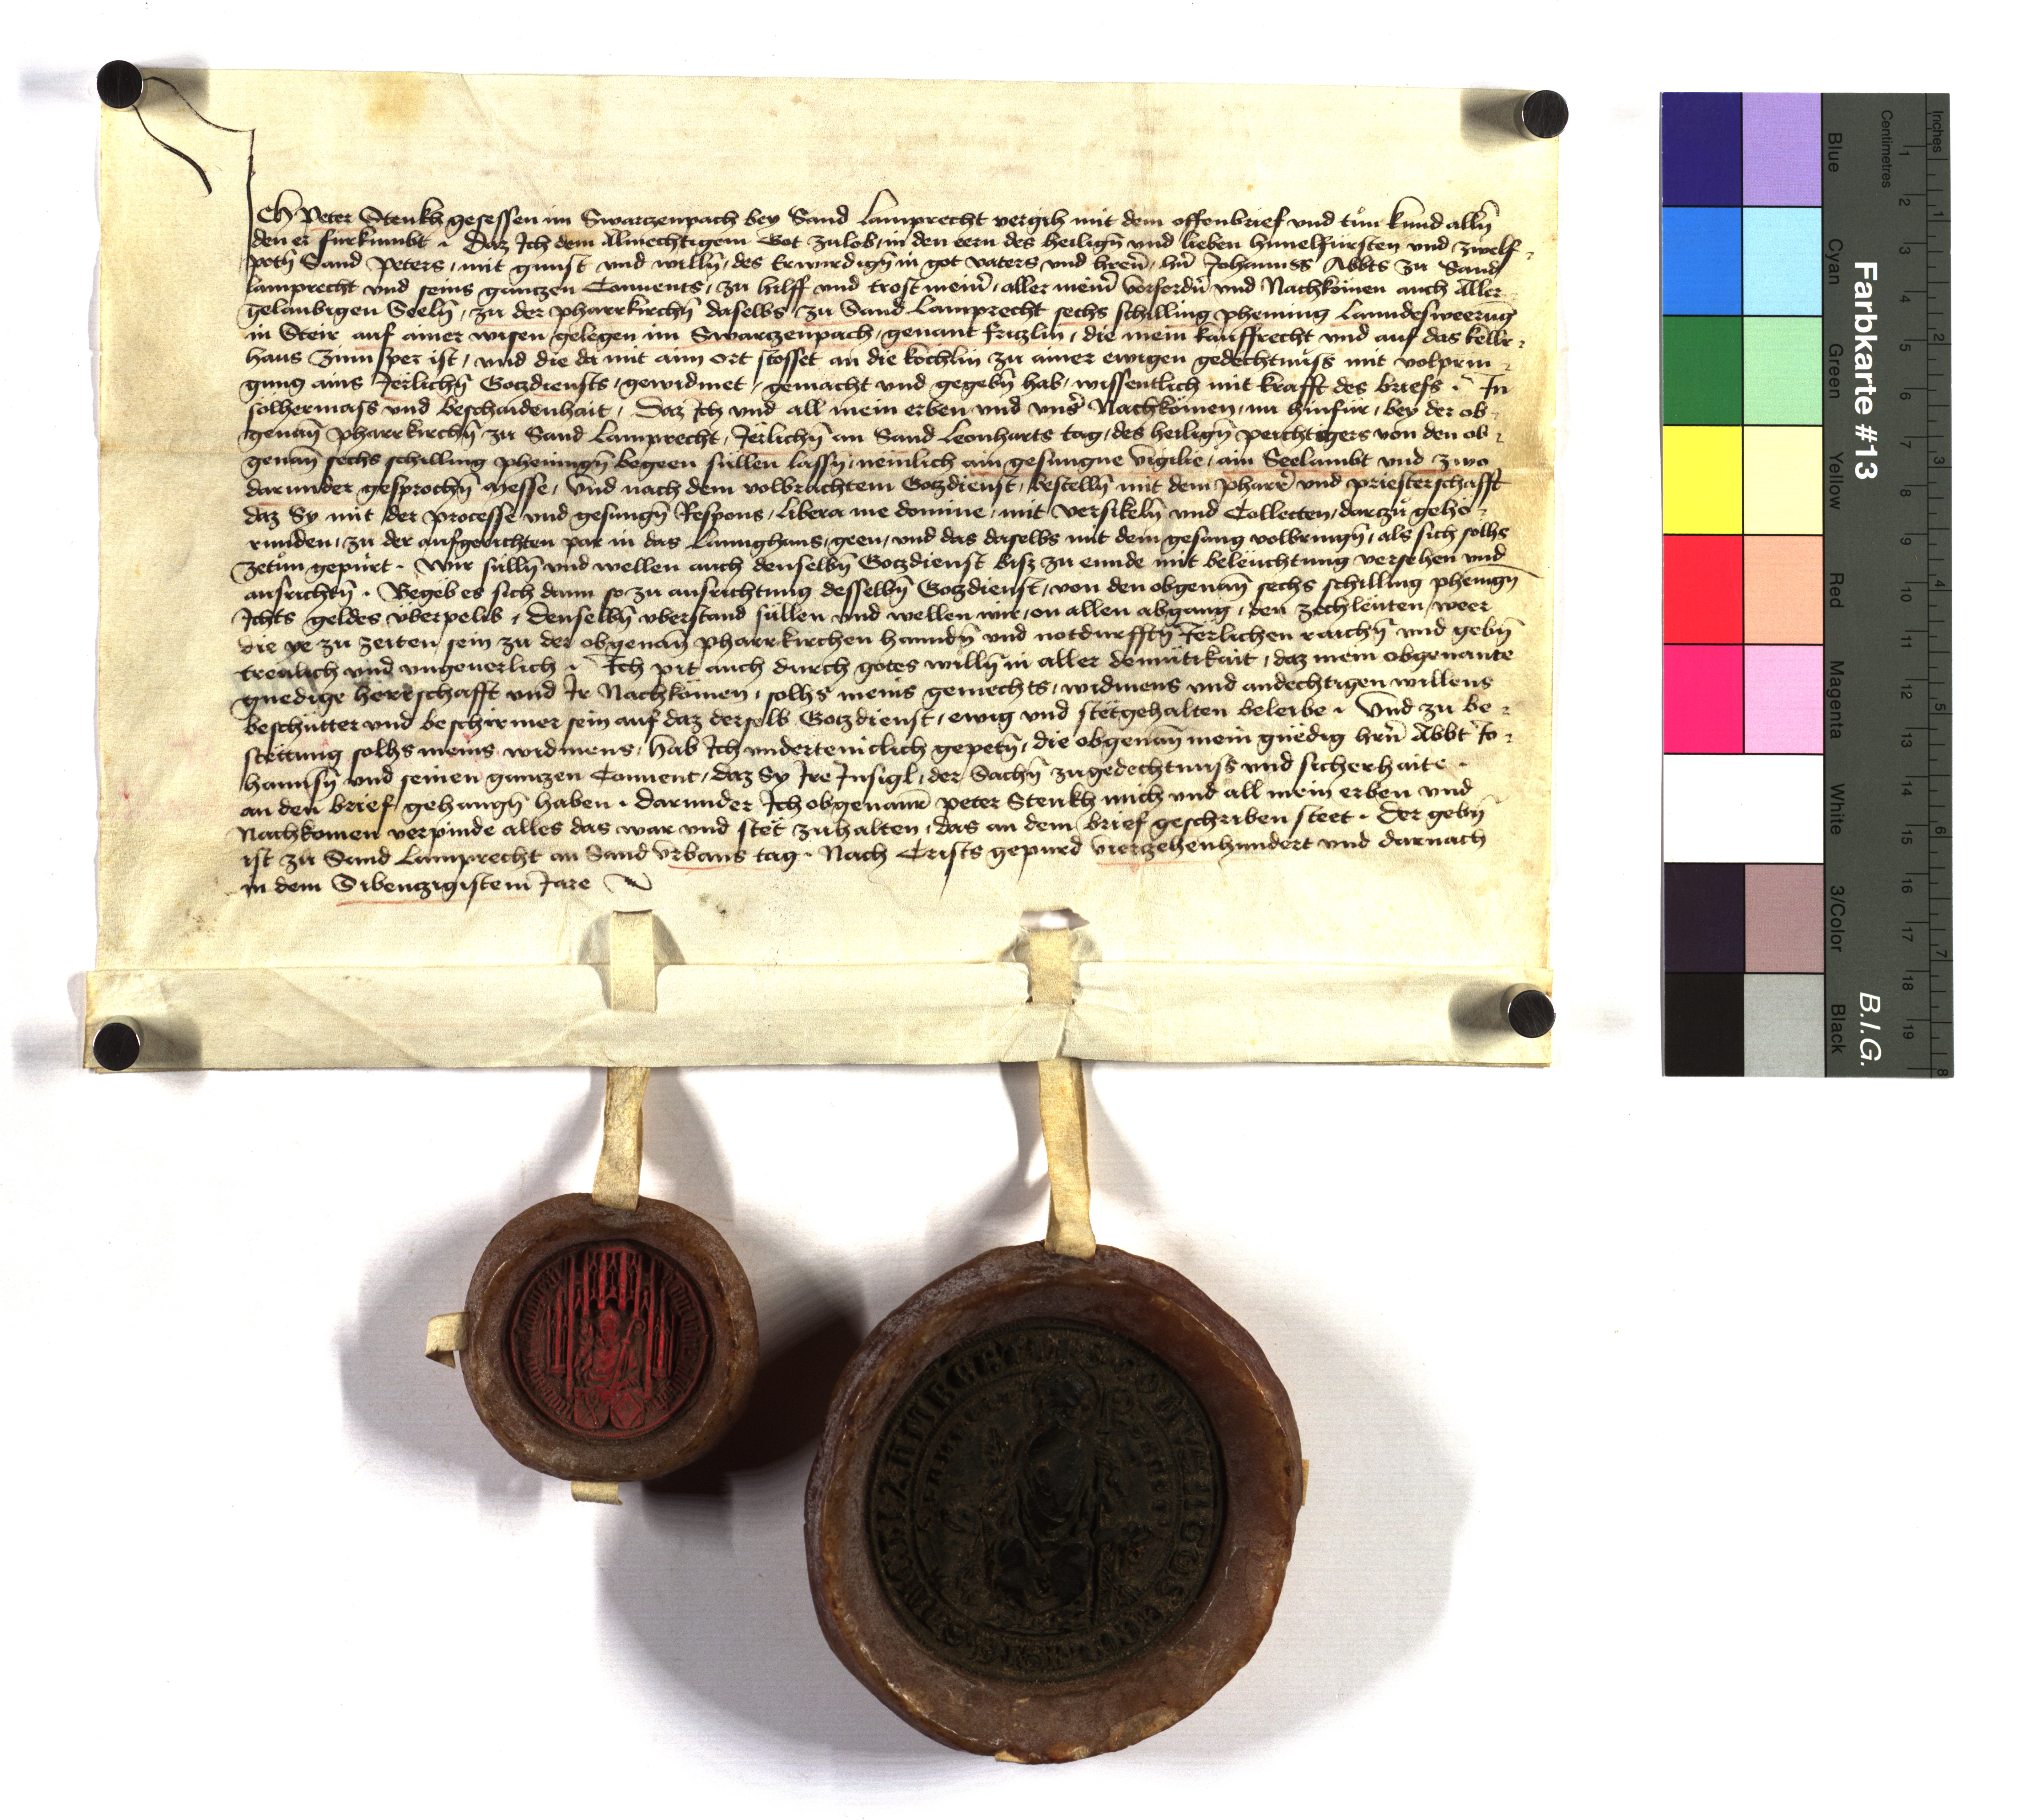 Ich Peter Stenkh gesessen im Swarczenpach bey Sand Lamprecht vergih mit dem offenbrief vnd tůn kund alln̄
den er fürkumbt · Daz Ich dem Almechtigem Got zulob, in den eern des heilign̄ und lieben himelfürsten vnd zwelf-
potn̄ Sand Peters, mit gunst vnd willn̄, des Erwirdign̄ in got vaters vnd hern̄, hn̄ Johanns Abbts zu Sand
lamprecht vnd seins ganczen Conuents, zu hilff vnd trost mein̄, aller mein̄ vorfordn̄ vnd Nachkömen auch Aller
gelaubigen Seeln̄, zu der pharrkirchn̄ daselbs zu Sand Lamprecht sechs schilling phening Lanndesweerug
in Steir auf ainer wisen gelegen im Swarczenpach, genant friczlin, die mein kauffrecht vnd auf das kellr-
haus Zinnsper ist, vnd die da mit aim ort stosset an die kochlin zu ainer ewigen gedechtnüss mit volprin-
gung ains Jerlichn̄ Goczdiensts, gewidmet, gemacht vnd gegebn̄ hab, wissentlich mit krafft des briefs · In
sölhermass vnd beschaidenhait, Daz Ich vnd all mein erben vnd vns̄ Nachkömen, nu hinfür, bey der ob-
genan̄ pharrkirchn̄ zu Sand Lamprecht, Jerlichn̄ an Sand Leonharts tag, des heilign̄ peichtigers von den ob-
genan̄ sechs schilling phenign̄ begeen süllen lassn̄, nemlich ain gesungne vigilie, ain Seelambt vnd zwo
darunder gesprochn̄ messe, vnd nach dem volbrachtem Goczdienst, bestelln̄ mit dem pharr̄ vnd priesterschafft
daz Sy mit der processe vnd gesungn̄ Respons, libera me domine, mit versikeln̄ vnd Collecten, darzů gehö-
runden, zu der aufgerichten par in das Lannghaus, geen, vnd das daselbs mit dem gesang volbringn̄, als sich solhs
zetůn gepürt · Wir sülln̄ vnd wellen auch denselbn̄ Goczdienst bisz zu ennde mit beleuchtung versehen vnd
ausrichtn̄ · Begëb es sich dann so zu ausrichtung desselbn̄ Goczdienst, von den obgenan̄ sechs schilling phenign̄
Ichts geldes überpelib, denselbn̄ vberstand süllen vnd wellen wir, on allen abgang, den zechleüten, weer
die ye zu zeiten sein zu der obgenan̄ pharrkirchen hanndn̄ vnd notdurfftn̄ Jerlichen raichn̄ vnd gebn̄
trewlich vnd vngeuerlich · Ich pit auch durch gotes willn̄ in aller demütikait, daz mein obgenante
gnedige herrschafft vnd Ir Nachkömen, solhs meins gemechts, widmens vnd andechtigen willens
beschütter vnd beschirmer sein auf daz derselb Goczdienst, ewig vnd stëtgehalten beleibe · Vnd zu be-
stettung solhs meins widmens, hab Ich vnderteniclich gepetn̄, die obgenan̄ mein gnëdig hrn̄ Abbt Jo-
hannsn̄ vnd seinen ganczen Conuent, daz Sy Ire Insigl, der Sachn̄ zugedechtnuss vnd sicherhaite ·
an den brief gehangn̄ haben · darunder Ich obgenantr̄ peter Stenkh mich vnd all mein erben vnd
Nachkomen verpinde alles das war vnd stët zuhalten, das an dem brief geschriben steet · Der gebn̄
ist zu Sand Lamprecht an Sand Vrbans tag · Nach Crists gepurd vierzehenhundert vnd darnach
in dem Sibenczigistem Jare
Farbkarte #13
B.I.G.
Inches
Centimetres
Blue
Cyan
Green
Yellow
Red
Magenta
White
3/Color
Black
1 2 3 4 5 6 7 8 9 10 11 12 13 14 15 16 17 18 19
1 2 3 4 5 6 7 8